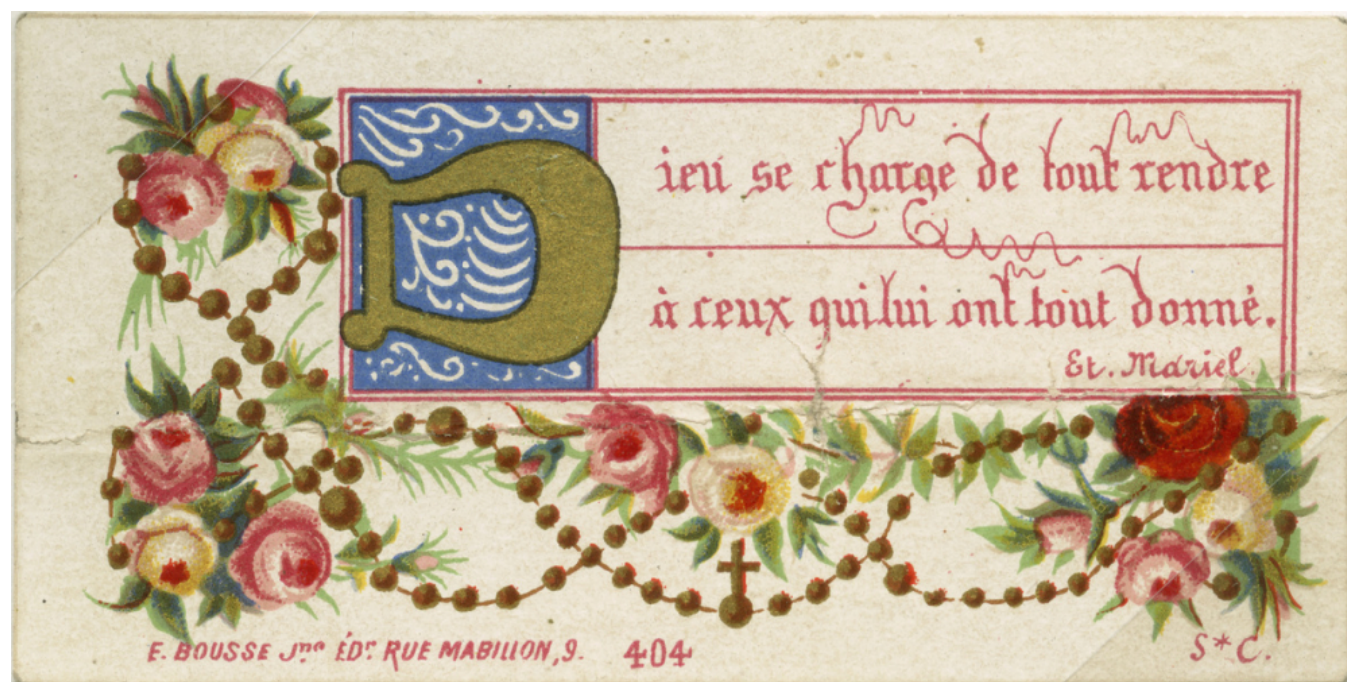 Dieu se charge de tout rendre
à ceux qui lui ont tout donné.
Et. Mariel.
E. BOUSSE Jne ÉDr RUE MABILLON, 9. 404
S*C.